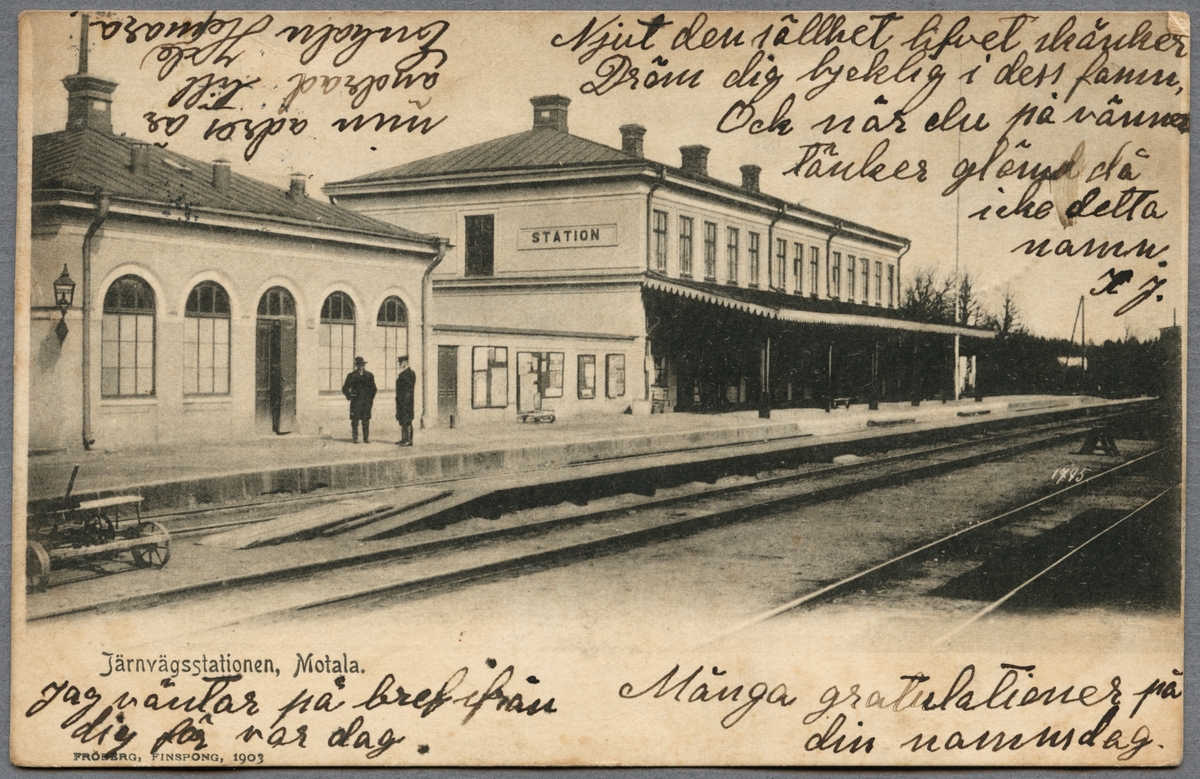 min adres är
andrad till
Hemara
Njut den sällhet lifvet skänker
Dröm dig lycklig i dess famn,
Och när du på vänner
tänker glöm då
icke detta
namn.
H J.
STATION
1795
Järnvägsstationen, Motala.
Jag väntar på bref ifrån
dig för var dag.
FRÖBERG, FINSPONG, 1903
Många gratulationer på
din namnsdag.